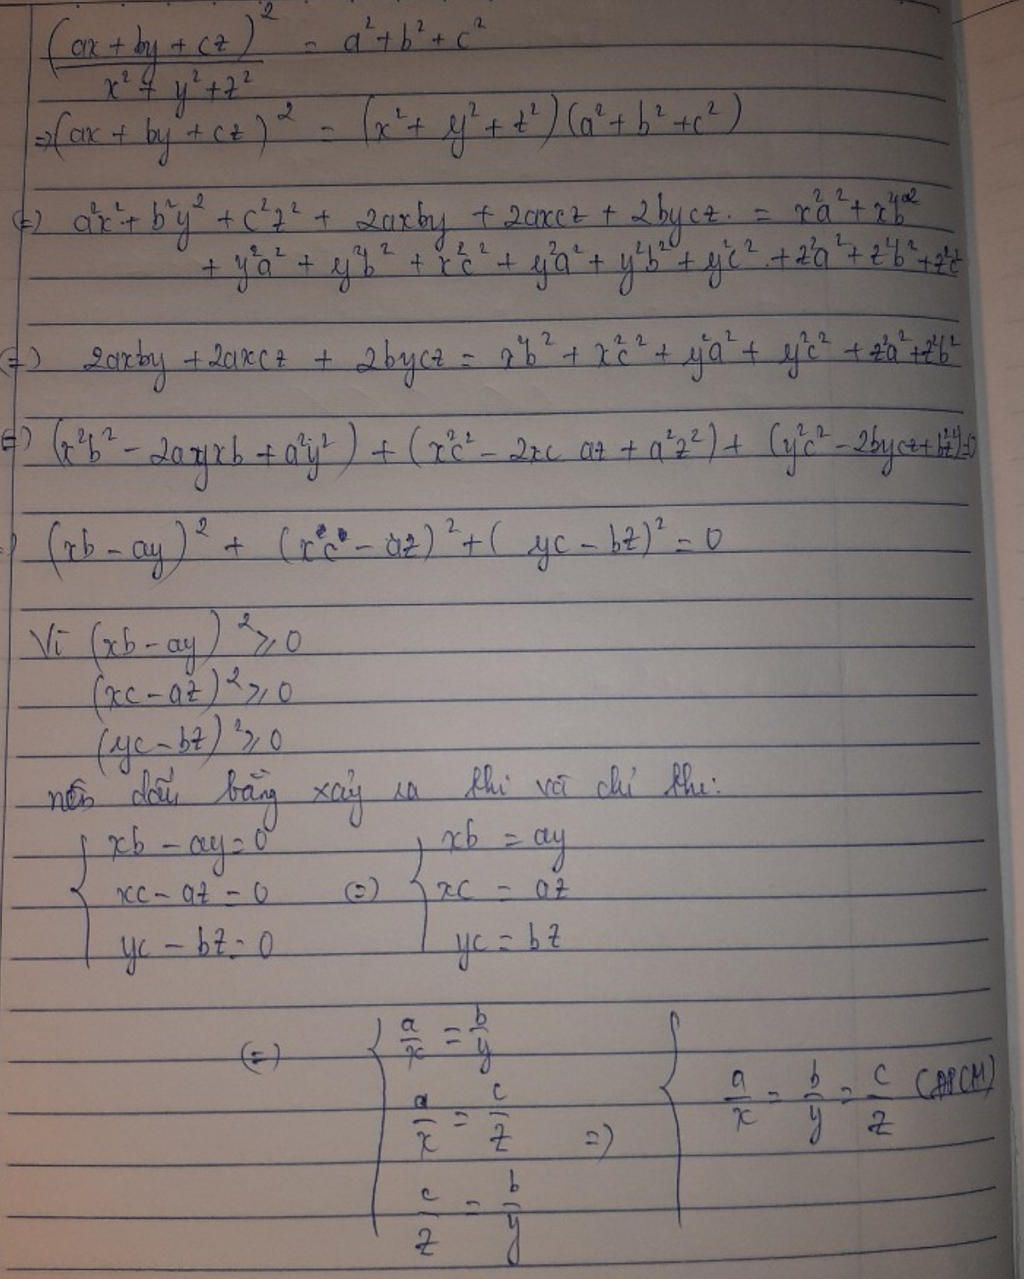 (ax + by + cz)² / x² + y² + z² = a² + b² + c²
=> (ax + by + cz)² = (x² + y² + z²)(a² + b² + c²)
(=) a²x² + b²y² + c²z² + 2axby + 2axcz + 2bycz = x²a² + x²b²
+ y²a² + y²b² + x²c² + y²a² + y²b² + y²c² + z²a² + z²b² + z²c²
(=) 2axby + 2axcz + 2bycz = x²b² + x²c² + y²a² + y²c² + z²a² + z²b²
(=) (x²b² - 2ayxb + a²y²) + (x²c² - 2xc az + a²z²) + (y²c² - 2bycz + b²z²) = 0
(xb - ay)² + (xc - az)² + (yc - bz)² = 0
Vì (xb - ay)² ≥ 0
(xc - az)² ≥ 0
(yc - bz)² ≥ 0
nên dấu bằng xảy ra khi và chỉ khi:
{ xb - ay = 0 { xb = ay
xc - az = 0 (=) xc = az
yc - bz = 0 yc = bz
(=) { a/x = b/y
a/x = c/z => { a/x = b/y = c/z (ĐPCM)
c/z = b/y